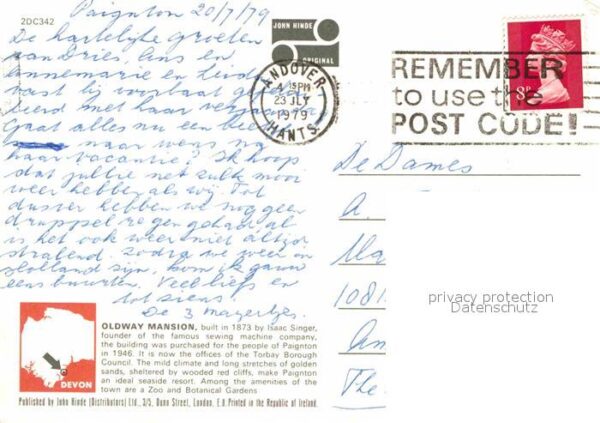 Paignton 20/7/79
2DC342
De hartelijke groeten
van Dries, Ans en
Annemarie en
vast bij voorbaat
met haar
Gaat alles nu een
naar wens na
haar vacantie? Ik hoop
dat jullie net zulk mooi
weer hebben als wij. Tot
dusver hebben we nog geen
druppel regen gehad al
is het ook weer niet altijd
stralend. Zodra we weer in
Holland zijn, kom ik gauw
eens buurten. Veel liefs en
tot ziens!
De 3
JOHN HINDE
ORIGINAL
ANDOVER
4 15 PM
23 JLY
1979
HANTS.
REMEMBER
to use the
POST CODE!
8P
De Dames
A.
Ma
1081
Am
The
privacy protection
Datenschutz
DEVON
OLDWAY MANSION, built in 1873 by Isaac Singer,
founder of the famous sewing machine company,
the building was purchased for the people of Paignton
in 1946. It is now the offices of the Torbay Borough
Council. The mild climate and long stretches of golden
sands, sheltered by wooded red cliffs, make Paignton
an ideal seaside resort. Among the amenities of the
town are a Zoo and Botanical Gardens
Published by John Hinde (Distributors) Ltd., 3/5, Dunn Street, London, E.8. Printed in the Republic of Ireland.